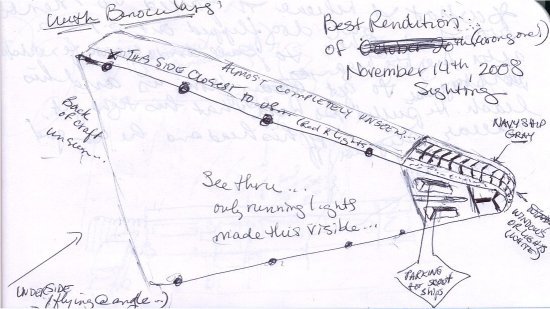 With Binoculars!
Best Rendition...
of October 30th (wrong one!)
November 14th, 2008
Sighting
Almost completely unseen...
* This side closest to us... (Red R lights)
Back
of craft
unseen...
Navy ship
gray
See thru...
only running lights
made this visible...
windows
or lights
(white)
Parking
for scout
ships
Underside
(flying @ angle...)